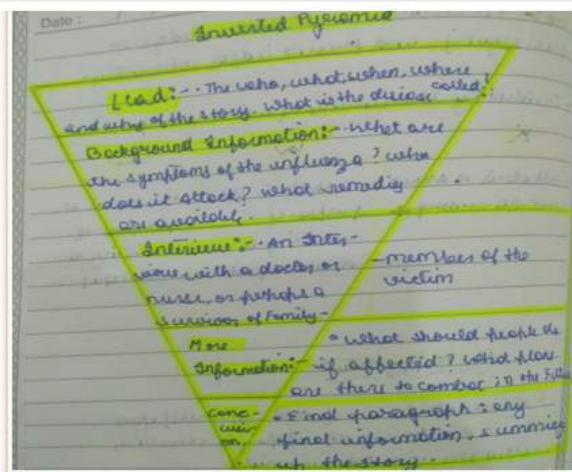 Date :
Inverted Pyramid
Lead:- · The who, what, when, where
and why of the story. What is the disease called?
Background Information:- · What are
the symptoms of the influenza? who
does it attack? what remedies
are available.
Interview:- · An Inter-
view with a doctor or
nurse, or perhaps a
survivor of Family-
-members of the
victim
More
Information:-
• what should people do
if affected? what plans
are there to combat in the
conc-
lusi-
on.
• Final paragraph: any
final information, summing
up the story.